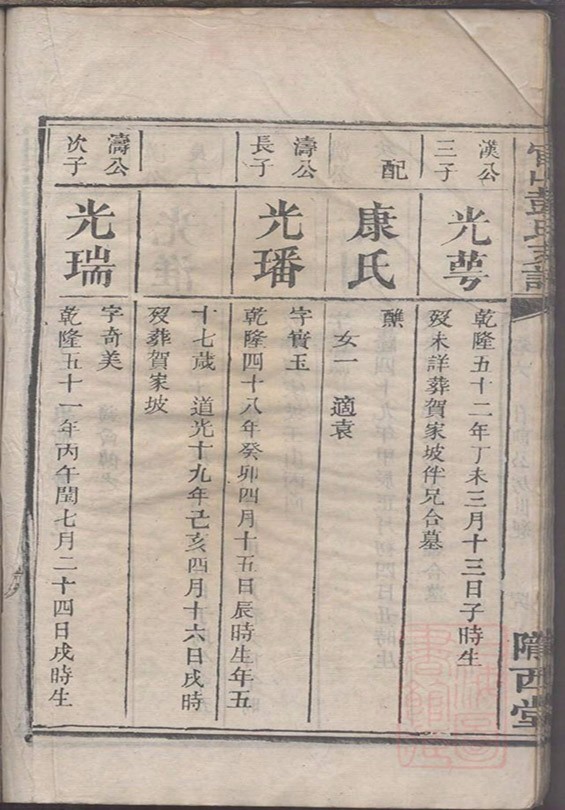 漢公
三子
光萼
乾隆五十二年丁未三月十三日子時生
歿未詳葬賀家坡伴兄合墓
配
康氏
醮
女一 適袁
濤公
長子
光璠
字實玉
乾隆四十八年癸卯四月十五日辰時生年五
十七歲 道光十九年己亥四月十六日戌時
歿葬賀家坡
濤公
次子
光瑞
字奇美
乾隆五十一年丙午閏七月二十四日戌時生
彭氏支譜
隴西堂